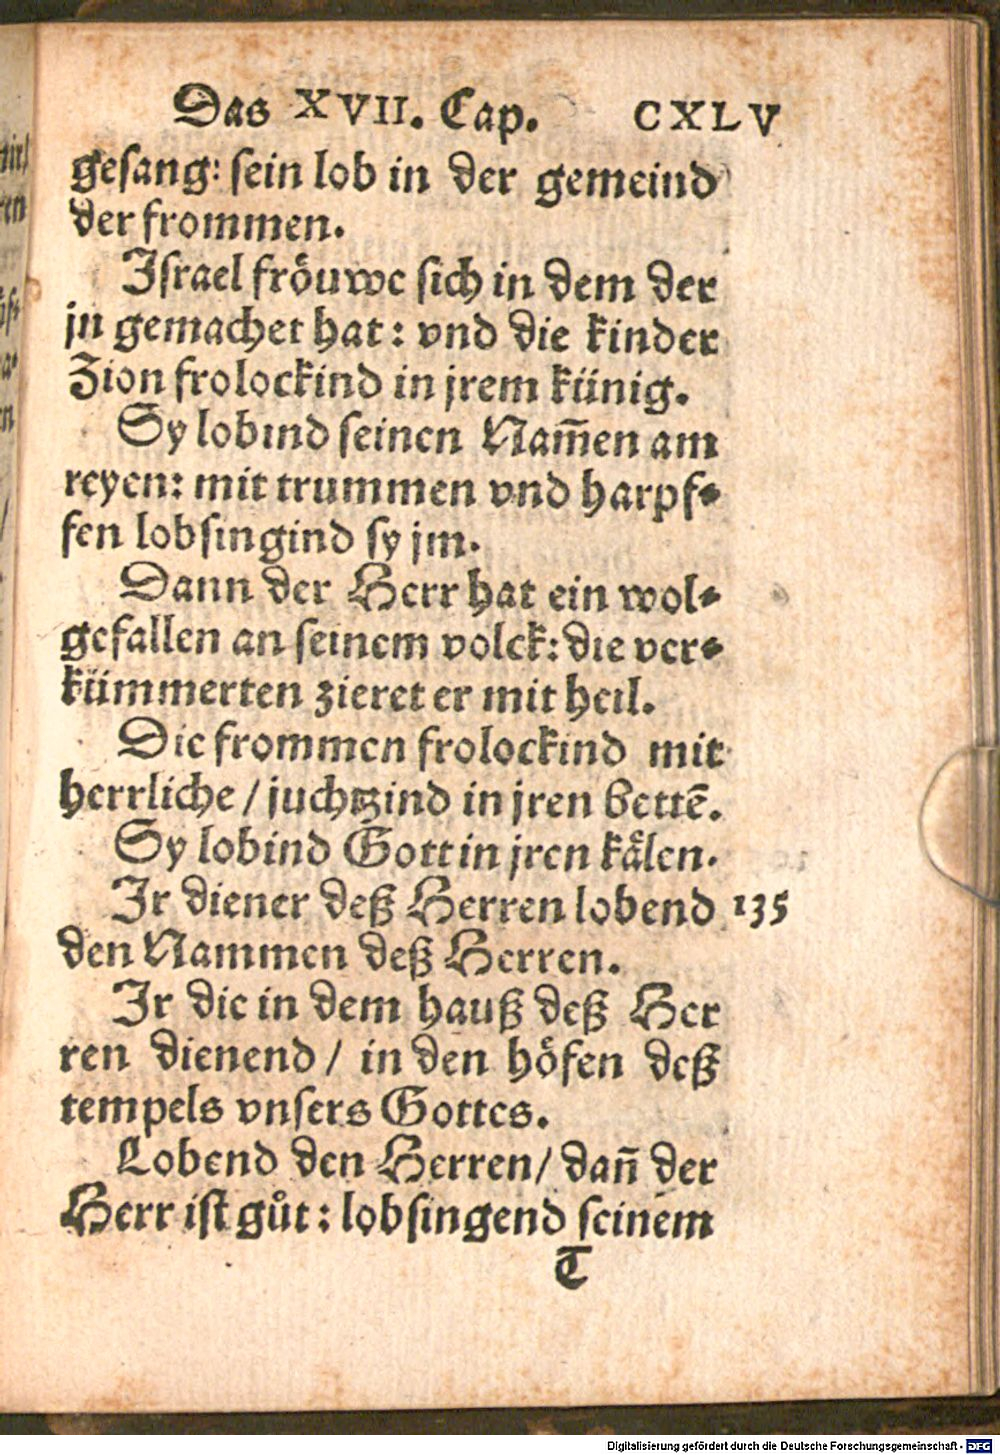 Das XVII. Cap. CXLV
gesang: sein lob in der gemeind
der frommen.
Israel fröuwe sich in dem der
jn gemachet hat: vnd die kinder
Zion frolockind in jrem künig.
Sy lobind seinen Nam̃en am
reyen: mit trummen vnd harpf⸗
fen lobsingind sy jm.
Dann der Herr hat ein wol⸗
gefallen an seinem volck: die ver⸗
kümmerten zieret er mit heil.
Die frommen frolockind mit
herrliche / juchtzind in jren bettē.
Sy lobind Gott in jren kälen.
Ir diener deß Herren lobend 135
den Nammen deß Herren.
Ir die in dem hauß deß Her
ren dienend / in den höfen deß
tempels vnsers Gottes.
Lobend den Herren / dañ der
Herr ist gůt: lobsingend seinem
T
Digitalisierung gefördert durch die Deutsche Forschungsgemeinschaft - DFG